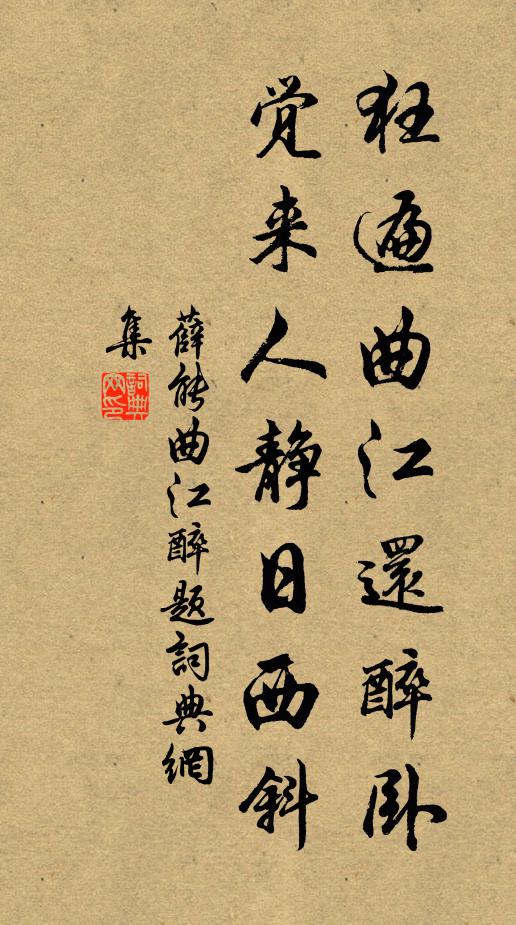 狂遍曲江還醉卧
覚来人静日西斜
薛能曲江醉题詞典網
集
詞典
网印